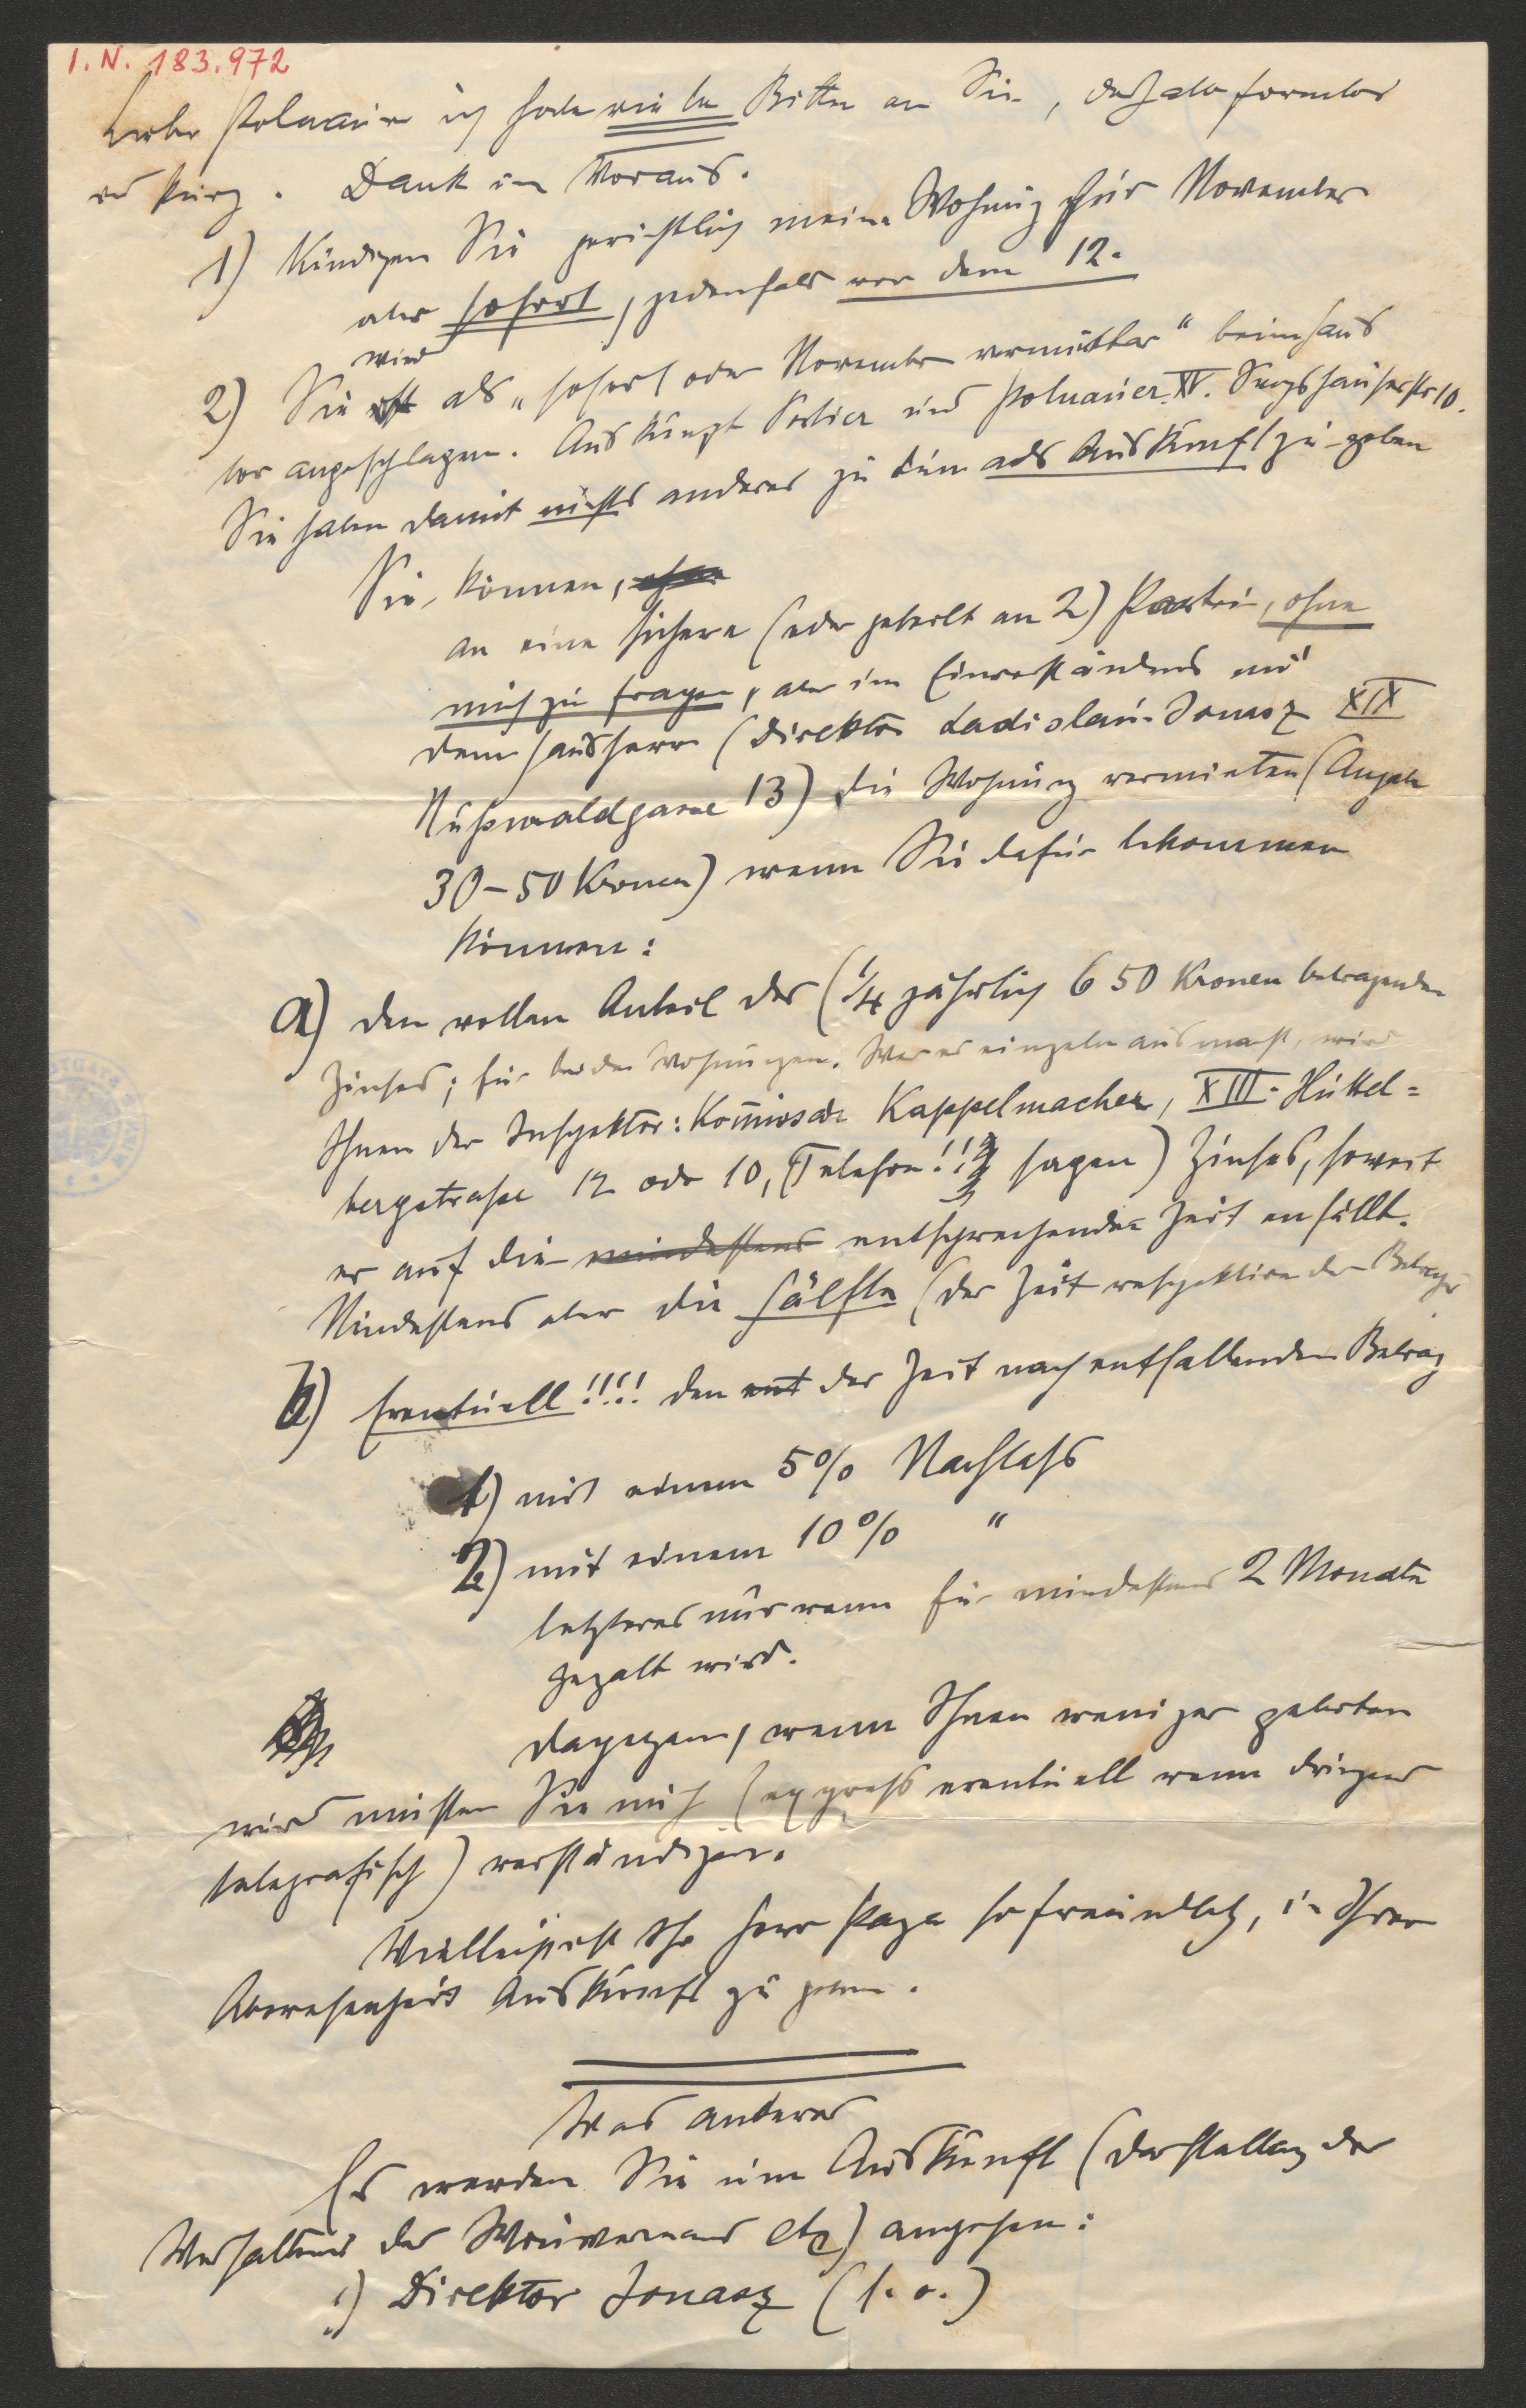 I. N. 183.972
Lieber Polnauer ich habe viele Bitten an Sie, deshalb formlos
und kurz. Dank im Voraus.
1) Kündigen Sie gerichtlich meine Wohnung für November
aber sofort, jedenfalls vor dem 12.
wird
2) Sie ist als „sofort oder November vermietbar" beim Haus
tor angeschlagen. Auskunft Portier und Polnauer XV. 10.
Sie haben damit nichts anderes zu tun als Auskunft zu geben
Sie können, ohne
an eine sichere (oder geteilt an 2) Partei, ohne
mich zu fragen, aber im Einverständnis mit
dem Hausherrn (Direktor Ladislaus Jonasz XIX
Nußwaldgasse 13) die Wohnung vermieten (Angabe
30–50 Kronen) wenn Sie dafür bekommen
können:
a) den vollen Anteil des (1/4 jährlich 650 Kronen betragenden
Zinses; für beide Wohnungen. Was es einzeln ausmacht, wird
Ihnen der Inspektor: Kommissär Kappelmacher, XIII. Hüttel=
bergstraße 12 oder 10, (Telefon!!! sagen) Zinses, soweit
er auf die mindestens entsprechende Zeit entfällt.
Mindestens aber die Hälfte (der Zeit respektive des Betrages
b) Eventuell!!!! den ent der Zeit nach entfallenden Betrag
1) mit einem 5% Nachlaß
2) mit einem 10% "
letzteres nur wenn für mindestens 2 Monate
gezalt wird.
dagegen, wenn Ihnen weniger geboten
wird müßten Sie mich (express eventuell wenn dringend
telegrafisch) verständigen.
Vielleicht ist Ihr Herr Papa so freundlich, in Ihrer
Abwesenheit Auskunft zu geben.
Was anderes
Es werden Sie um Auskunft (Darstellung des
Verhaltens des etc) angehen:
1) Direktor Jonasz (s. o.)